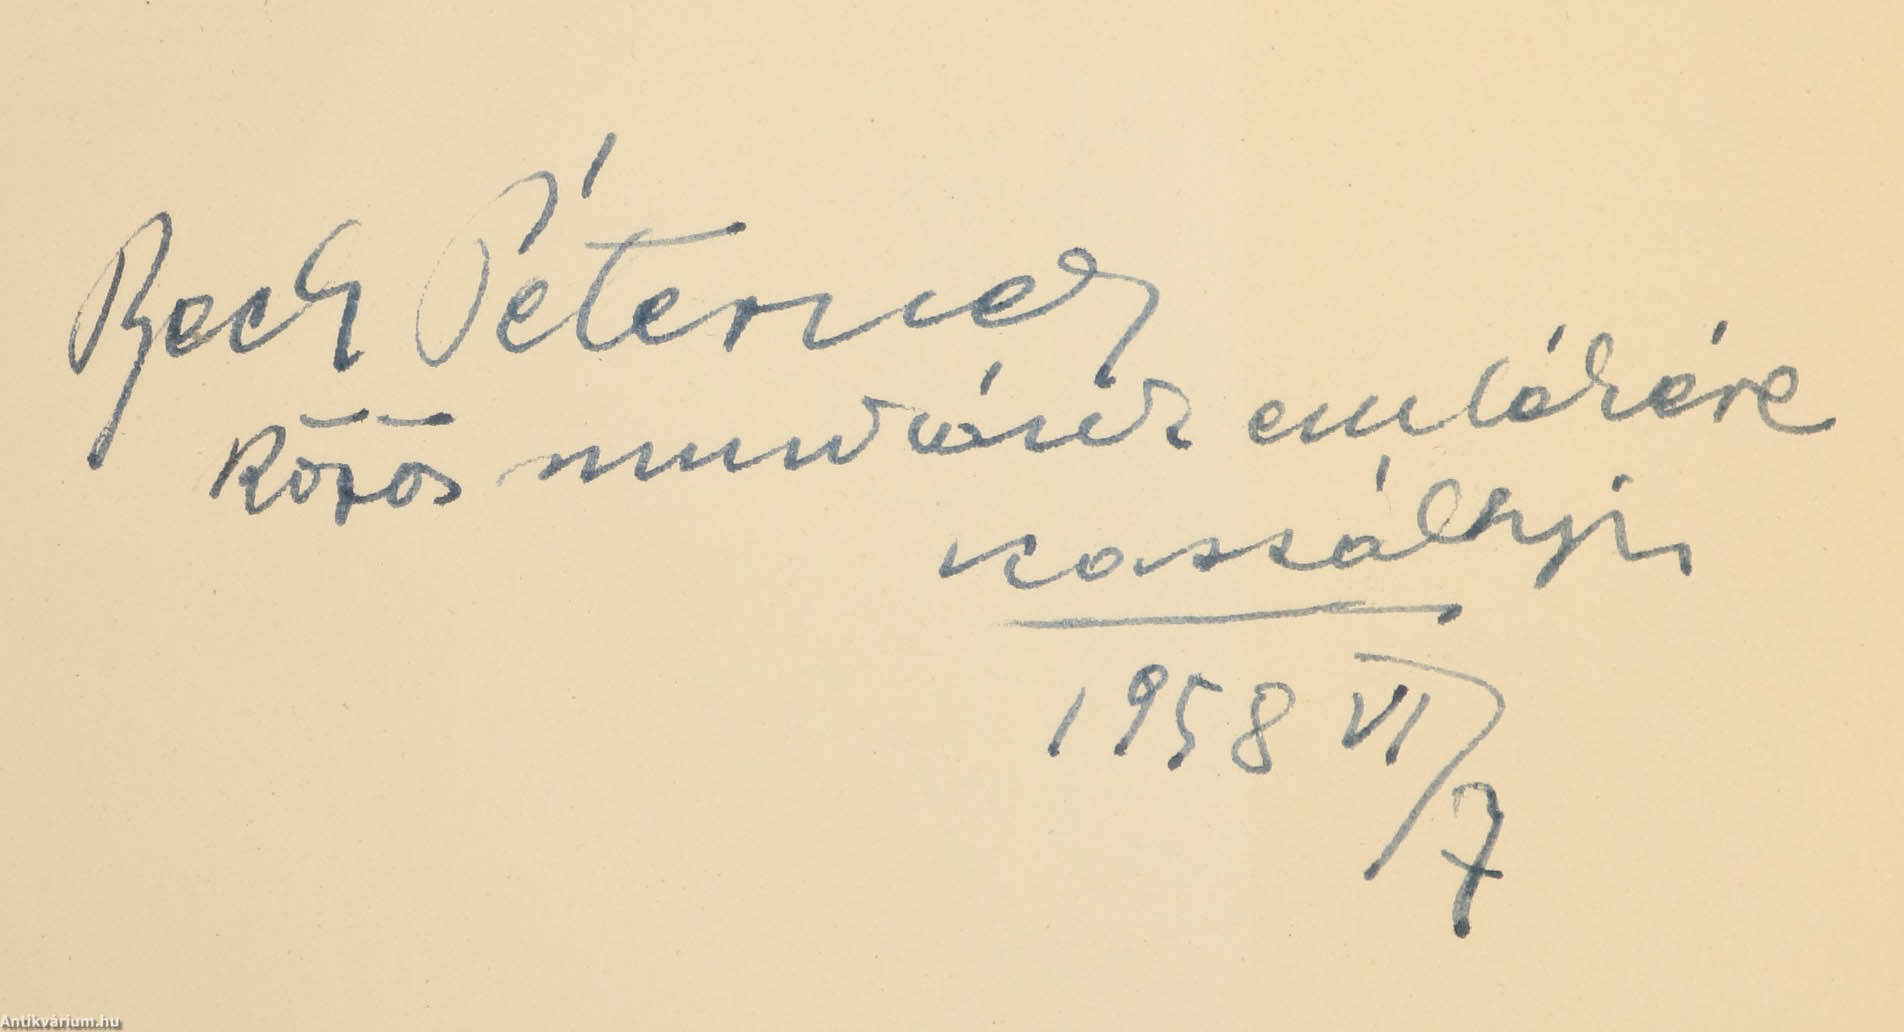 Bech Péternek
közös munkánk emlékére
Kaszályi
1958 VI/7
Antikvárium.hu